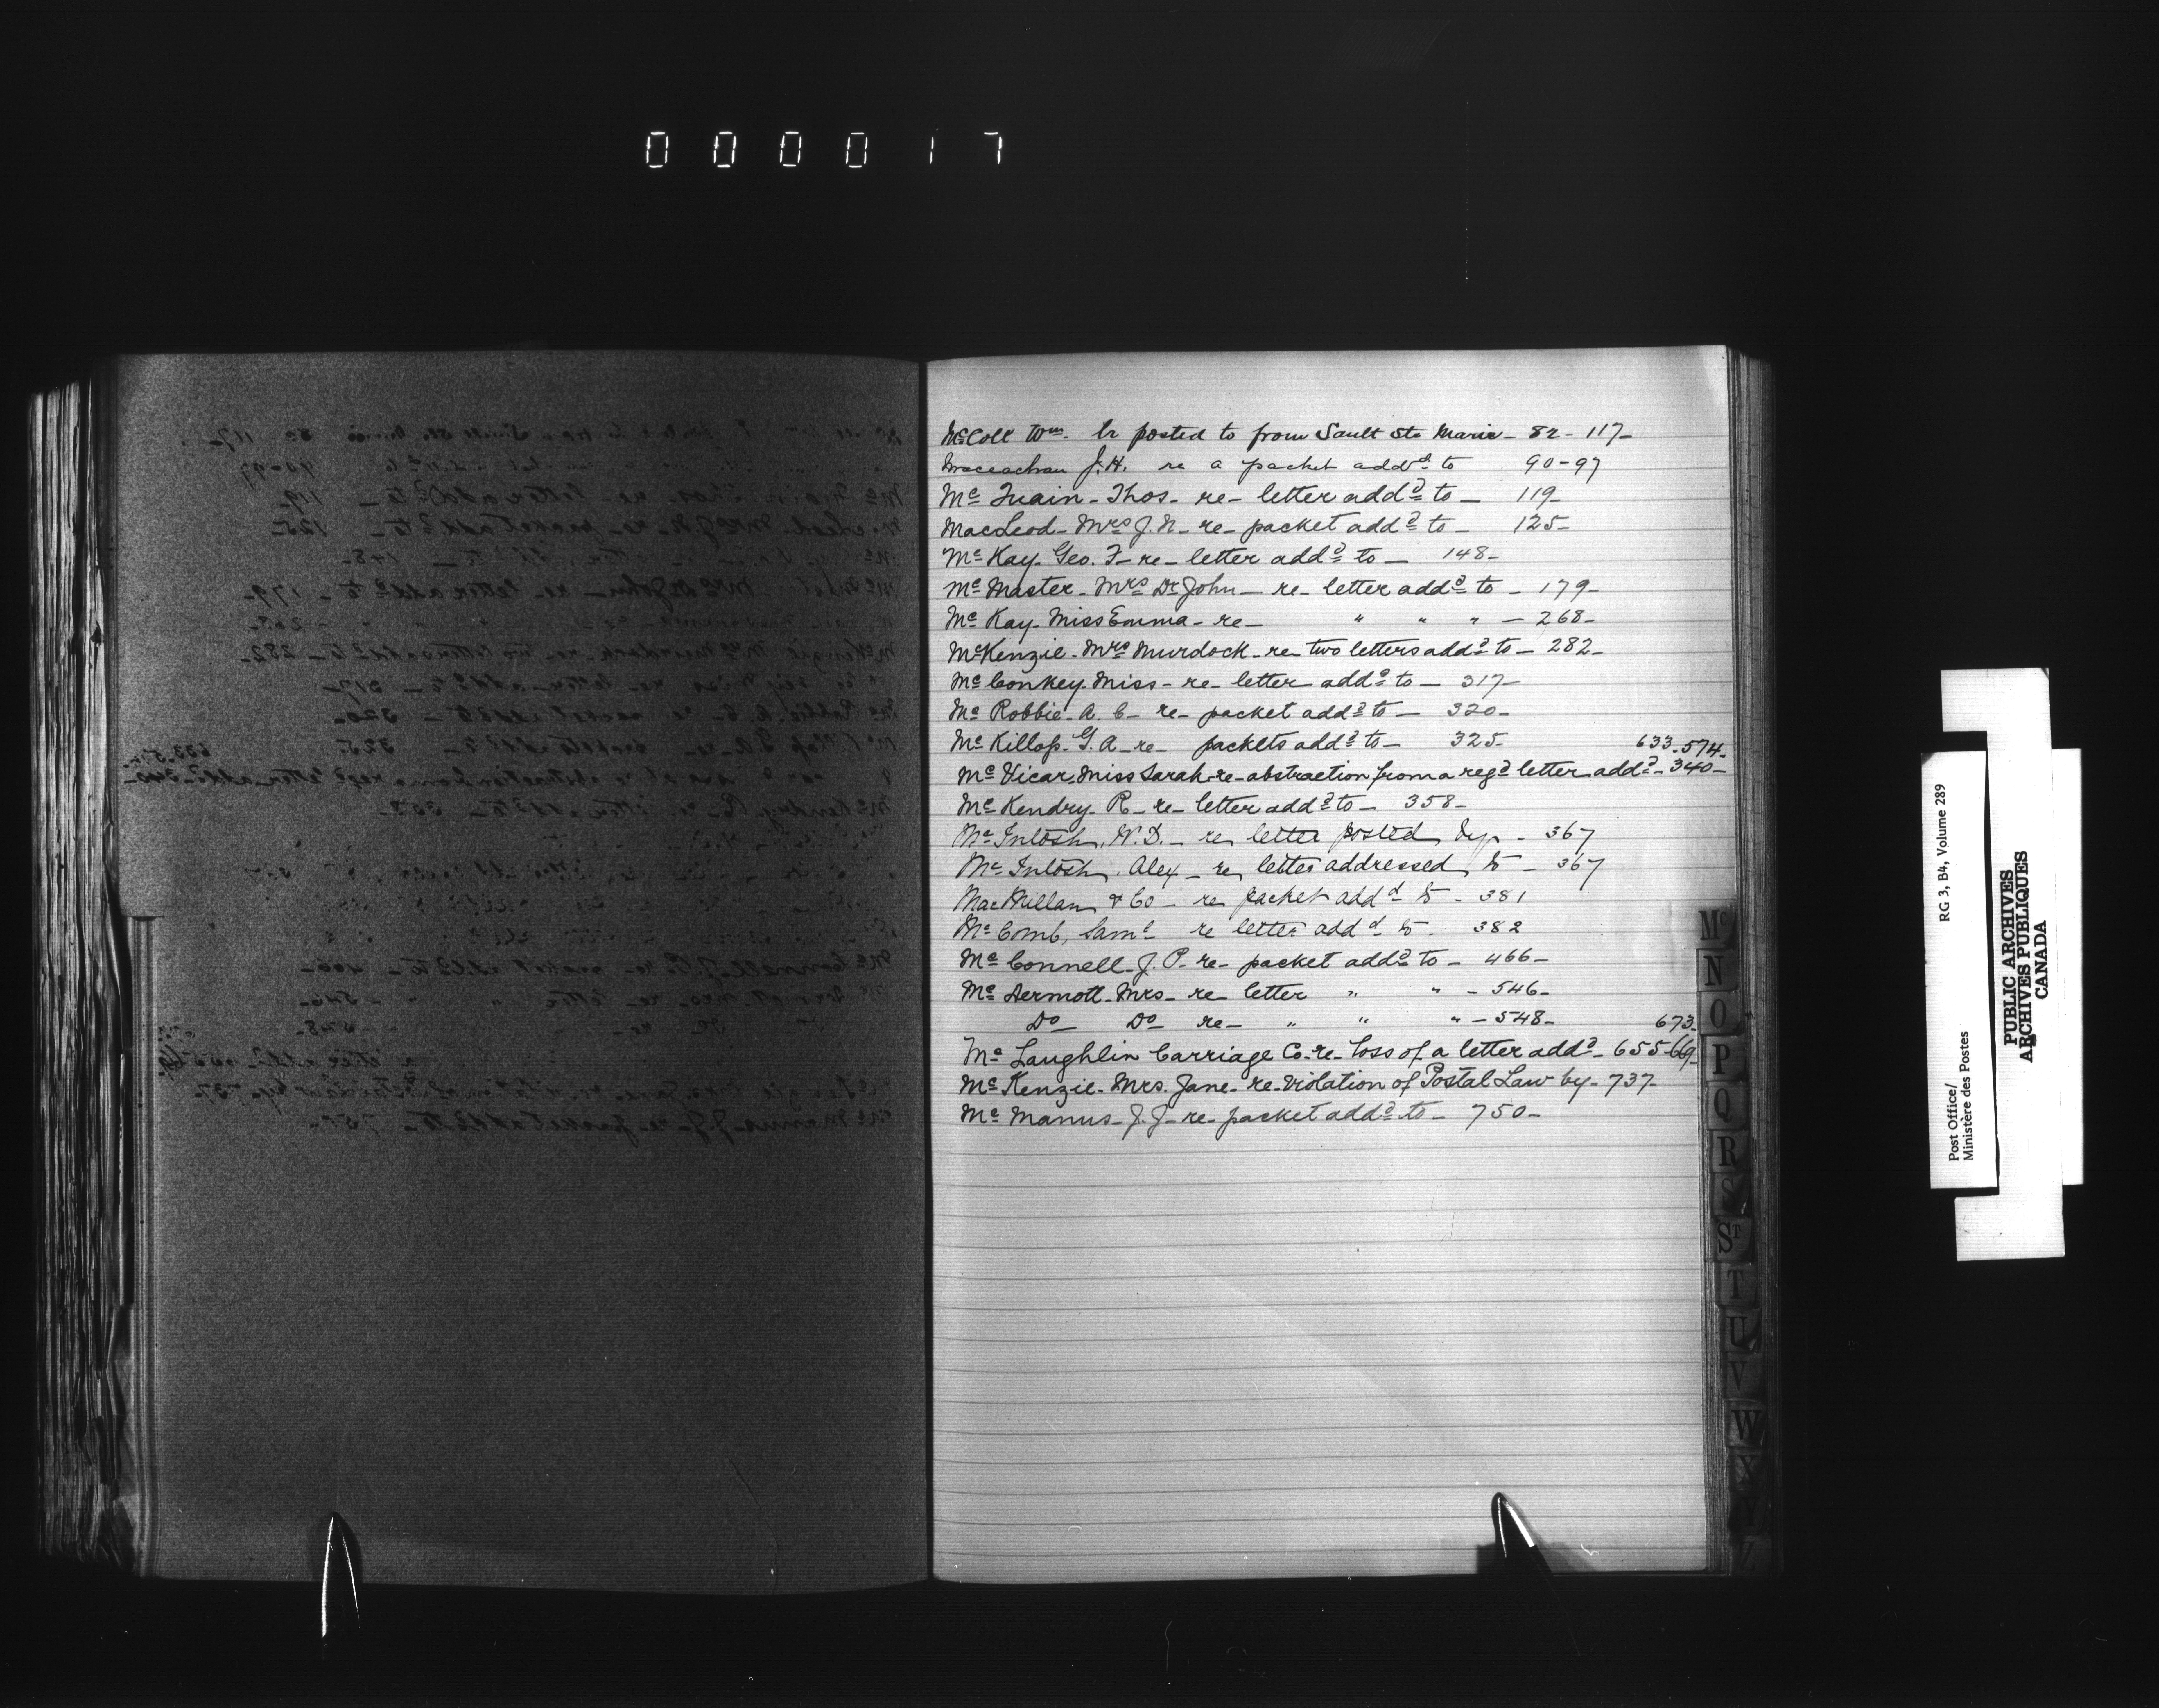 000017
McColl Wm. lr posted to from Sault Ste Marie - 82 - 117 -
Maceachan J.H. re a packet addd to 90 - 97
Mc Quain - Thos - re - letter addd to - 119 -
MacLeod - Mrs J. N - re - packet addd to - 125 -
Mc Kay - Geo. F - re - letter addd to - 148 -
Mc Master - Mrs Dr John - re - letter addd to - 179 -
Mc Kay - Miss Emma - re - " " " - 268 -
McKenzie - Mrs Murdock - re two letters addd to - 282 -
Mc Conkey - Miss - re - letter addd to - 317 -
Mc Robbie - A. C - re - packet addd to - 320 -
Mc Killop - G. A - re - packets addd to - 325 -
633 - 574 -
Mc Vicar, Miss Sarah - re - abstraction from a regd letter addd - 340 -
Mc Kendry - R - re - letter addd to - 358 -
Mc Intosh, W. D. - re letter posted by - 367
Mc Intosh, Alex - re letter addressed to - 367
MacMillan & Co - re packet addd to - 381
Mc Comb, Saml re letter addd to - 382
Mc Connell - J. P. - re - packet addd to - 466 -
Mc Dermott - Mrs - re letter " " - 546 -
Do Do re - " " " - 548 -
673 -
Mc Laughlin Carriage Co - re - loss of a letter addd - 655 - 669 -
Mc Kenzie - Mrs. Jane - re - Violation of Postal Law by - 737 -
Mc Manus - J. J - re - packet addd to - 750 -
Mc
N
O
P
Q
R
S
ST
T
U
V
W
X
Y
Z
RG 3, B4, Volume 289
Post Office/
Ministère des Postes
PUBLIC ARCHIVES
ARCHIVES PUBLIQUES
CANADA